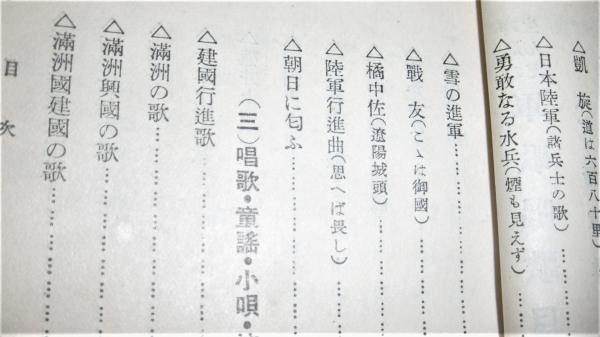 △凱　旋(道は六百八十里)‥‥
△日本陸軍(諸兵士の歌)‥‥‥
△勇敢なる水兵(煙も見えず)‥‥‥
△雪の進軍‥‥‥‥‥‥
△戰　友(こゝは御國)‥‥‥‥
△橘中佐(遼陽城頭)‥‥‥‥
△陸軍行進曲(思へば畏し)‥‥‥
△朝日に匂ふ‥‥‥‥‥‥
(三)唱歌・童謠・小唄・
△建國行進歌‥‥‥‥‥‥
△滿洲の歌‥‥‥‥‥‥
△滿洲興國の歌‥‥‥‥‥
△滿洲國建國の歌‥‥‥‥
目次